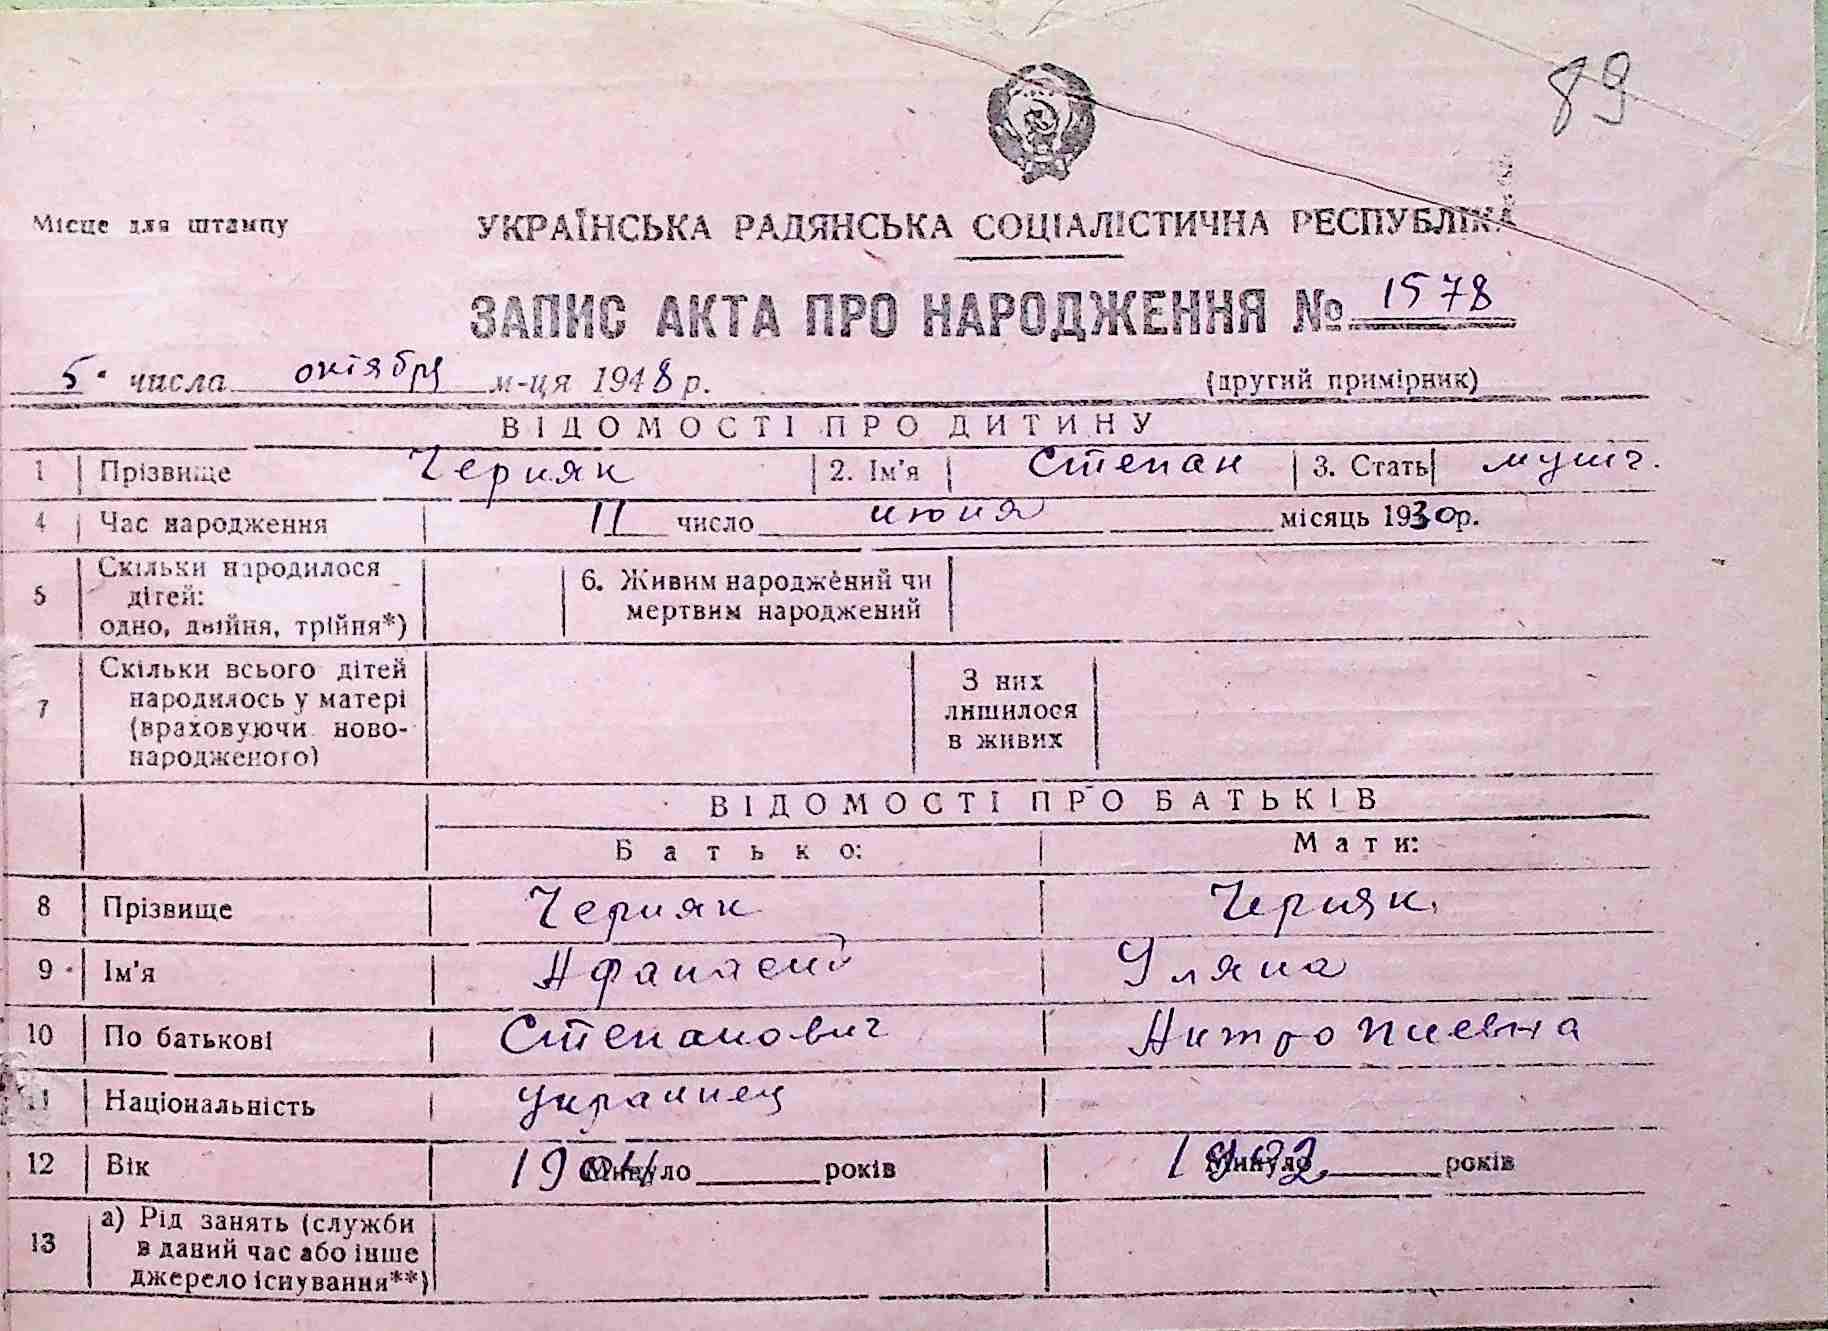 89
Місце для штампу
УКРАЇНСЬКА РАДЯНСЬКА СОЦІАЛІСТИЧНА РЕСПУБЛІКА
ЗАПИС АКТА ПРО НАРОДЖЕННЯ № 1578
5 числа октября м-ця 1948 р. (другий примірник)
ВІДОМОСТІ ПРО ДИТИНУ
1 Прізвище Черняк 2. Ім'я Степан 3. Стать мужч.
4 Час народження 11 число июня місяць 1930р.
5 Скільки народилося дітей: одно, двійня, трійня*) 6. Живим народжений чи мертвим народжений
7 Скільки всього дітей народилось у матері (враховуючи ново-народженого) З них лишилося в живих
ВІДОМОСТІ ПРО БАТЬКІВ
Батько: Мати:
8 Прізвище Черняк Черняк
9 Ім'я Афанасий Уляна
10 По батькові Степанович Антроп​иевна
11 Національність украинец
12 Вік Минуло років Минуло років
13 а) Рід занять (служби в даний час або інше джерело існування**)